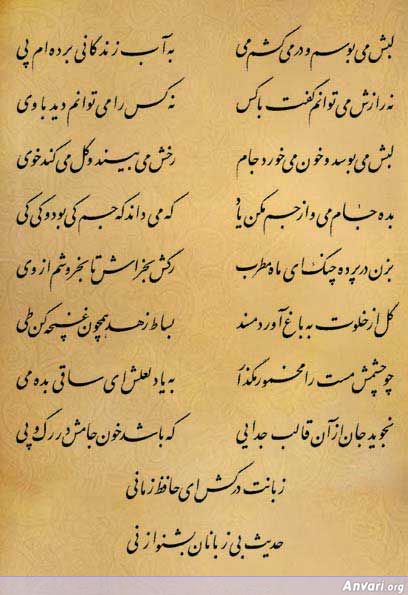 لبش می بوسم و در می کشم می به آب زندگانی برده ام پی
نه رازش می توانم گفت با کس نه کس را می توانم دید با وی
لبش می بوسد و خون می خورد جام رخش می بیند و گل می کند خوی
بده جام می و از جم مکن یاد که می داند که جم کی بود و کی کی
بزن در پرده چنگ ای ماه مطرب رگش بخراش تا بخروشم از وی
گل از خلوت به باغ آورد مسند بساط زهد همچون غنچه کن طی
چو چشمش مست را مخمور مگذار به یاد لعلش ای ساقی بده می
نجوید جان از آن قالب جدایی که باشد خون جامش در رگ و پی
زبانت درکش ای حافظ زمانی
حدیث بی زبانان بشنو از نی
Anvari.org